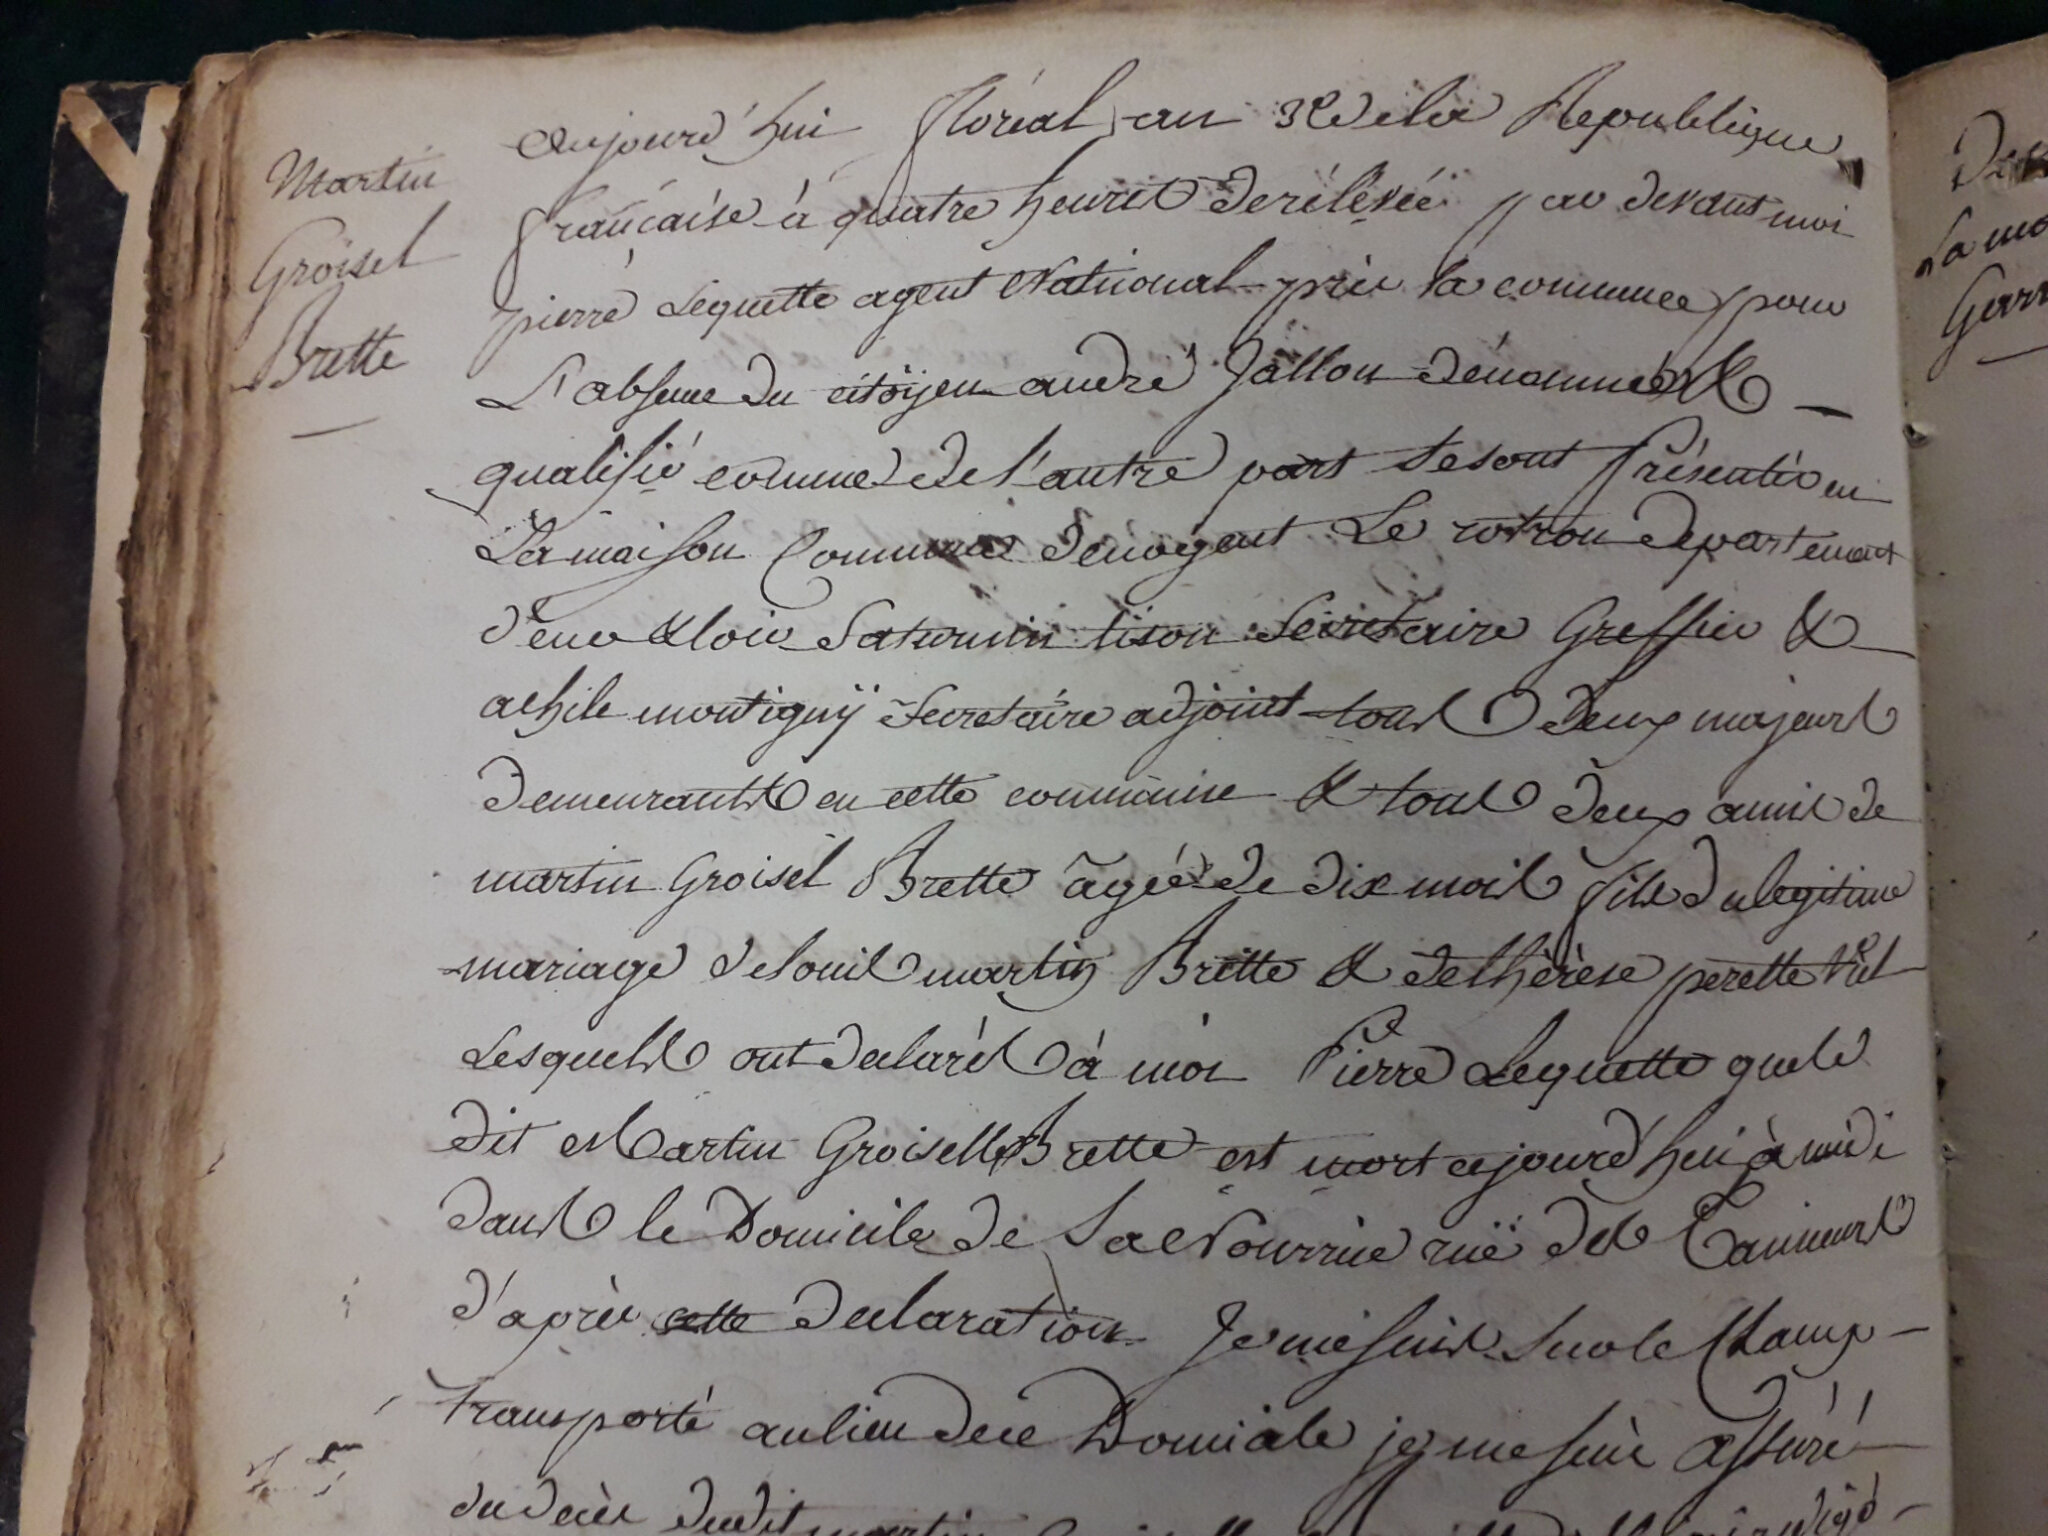 Martin
Groisel
Brette
aujourd'hui floréal an 3e de la Republique
francaise à quatre heures de rélevée par devant moi
pierre Lequette agent National près la commune pour
L'absence du citoÿen andré Jallon dénommé &
qualifié comme de l'autre part se sont Présentés en
La maison Commune de nogent Le rotrou departement
d'eure & loir Saturnin tison Secretaire Greffier &
achile montignÿ Secretaire adjoint tous deux majeurs
demeurants en cette commune & tous deux amis de
martin Groisel Brette âgé de dix mois fils du legitime
mariage de louis martin Brette & de thérèse perette
Lesquels ont declarés à moi Pierre Lequette que le
dit Martin Groiselle Brette est mort aujourd'hui à midi
dans le Domicile de Sa Nourrice ruë des Tanneurs
d'après cette declaration Je me suis sur le Champ
transporté au lieu de ce Domicile je me suis assuré
du decès dudit martin
De
La mo
Garn